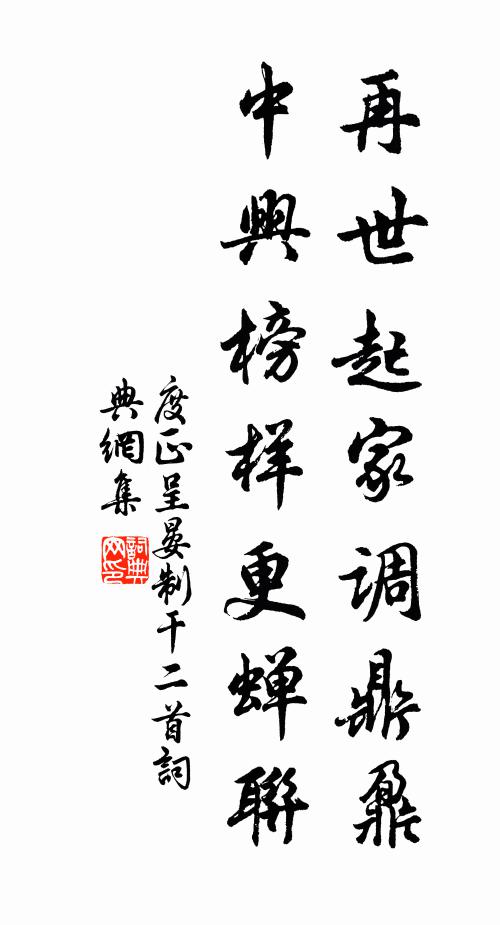 再世起家调鼎鼐
中興榜样更蝉聯
度正呈晏制干二首詞
典網集
詞典网印